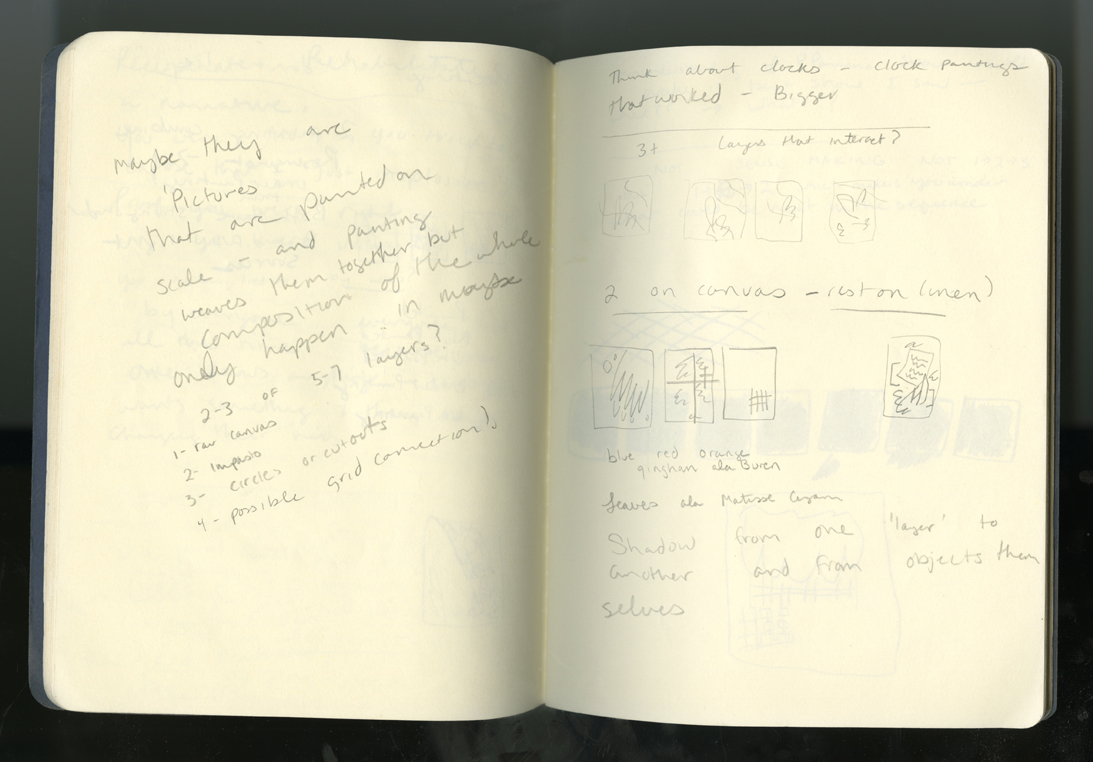 maybe they are
'Pictures
that are painted on
scale - and painting
weaves them together but
composition of the whole
only happen - in maybe
2-3 of 5-7 layers?
1- raw canvas
2- impasto
3- circles or cutouts
4- possible grid connection).
Think about clocks - clock paintings
that worked - Bigger
3+ layers that interact?
2 on canvas - rest on linen)
blue red orange
gingham ala Buren
leaves ala Matisse
Shadow from one 'layer' to
another and from objects them
selves